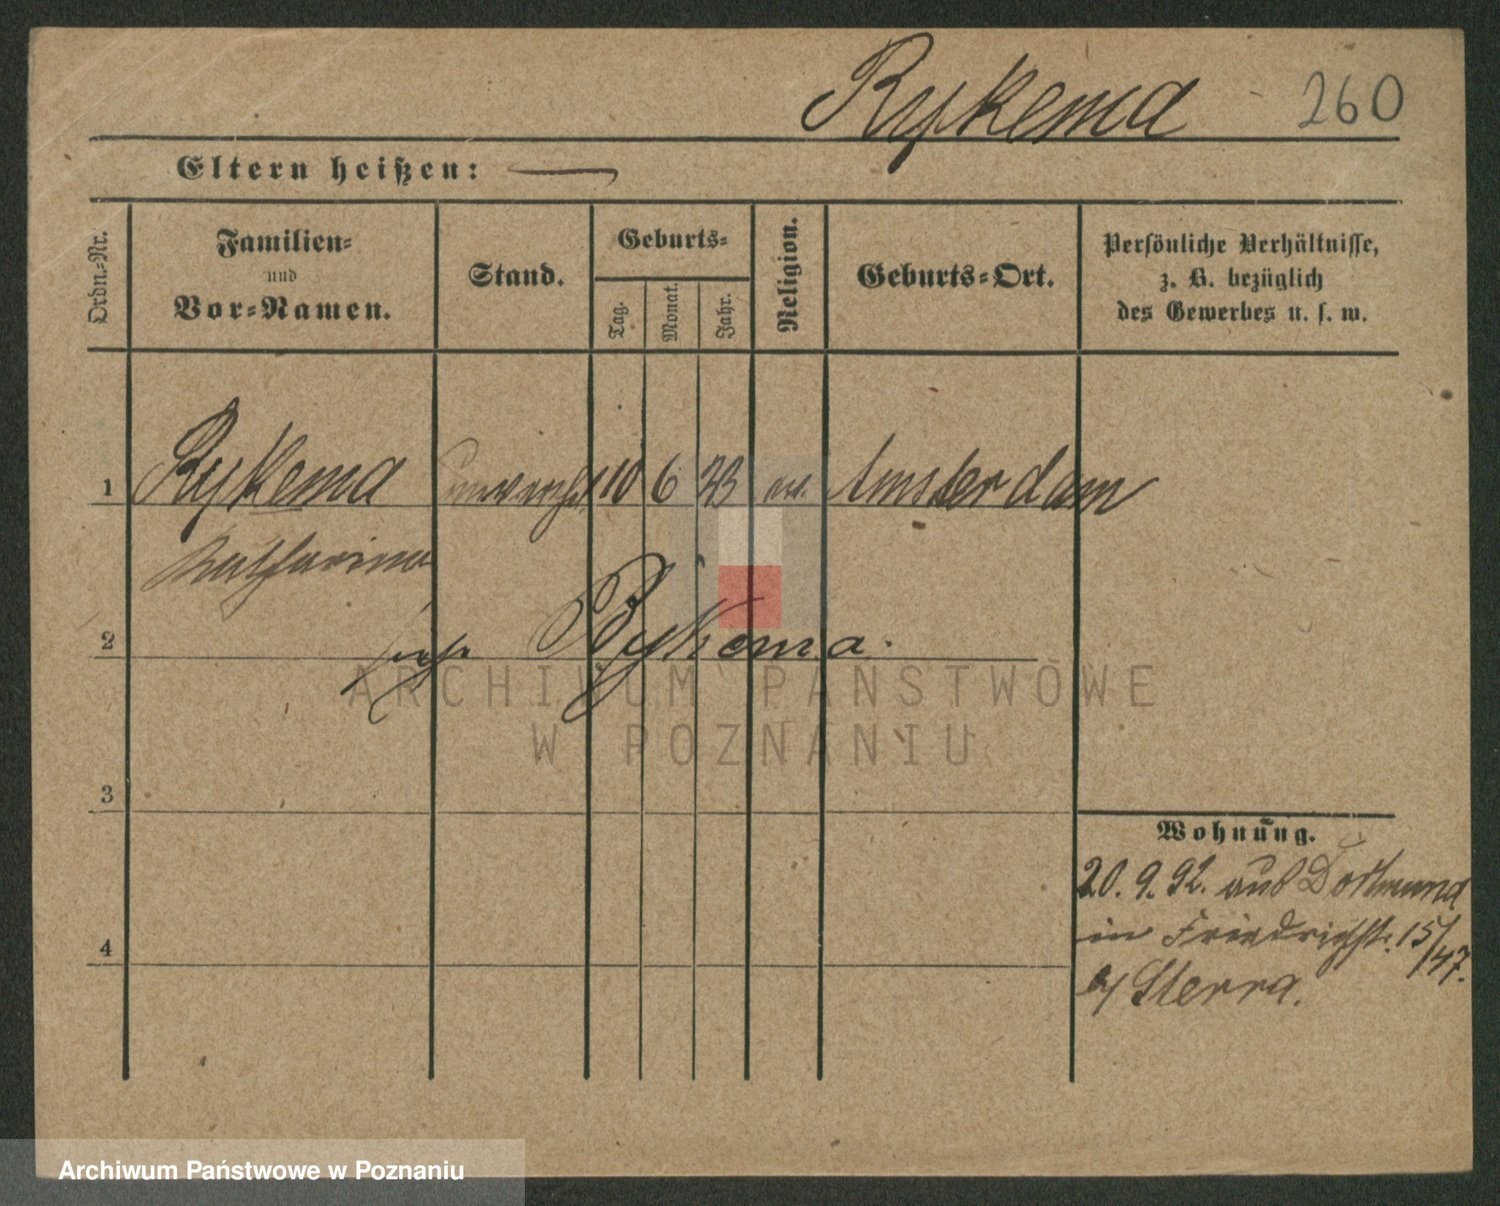 Rykema 260
Eltern heißen: —
Ordn.=Nr.
Familien=
und
Vor=Namen.
Stand.
Geburts=
Tag.
Monat.
Jahr.
Religion.
Geburts=Ort.
Persönliche Verhältnisse,
z. B. bezüglich
des Gewerbes u. s. w.
1 Rykema unverehel. 10 6 73 ev. Amsterdam
Katharina
2 siehe Bykema.
ARCHIWUM PAŃSTWOWE
W POZNANIU
3
Wohnung.
20. 9. 92. aus Dortmund
in Friedrichstr. 15/47.
b/ Sterra.
4
Archiwum Państwowe w Poznaniu